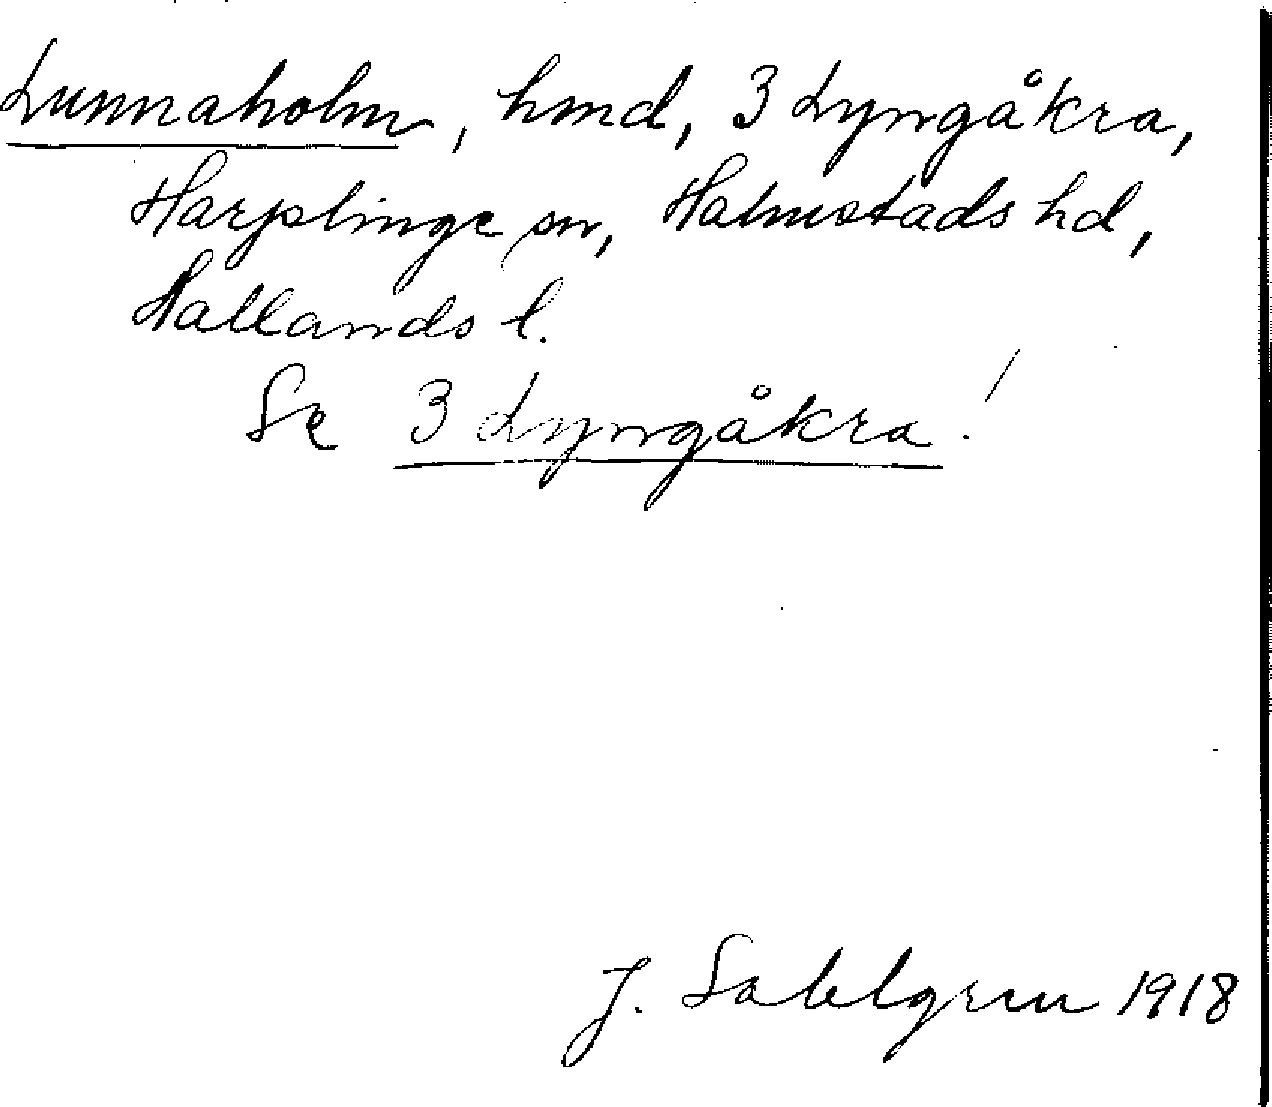 Lunnaholm, hmd, 3 Lyngåkra,
Harplinge sn, Halmstads hd,
Hallands l.
Se 3 Lyngåkra!
J. Sahlgren 1918